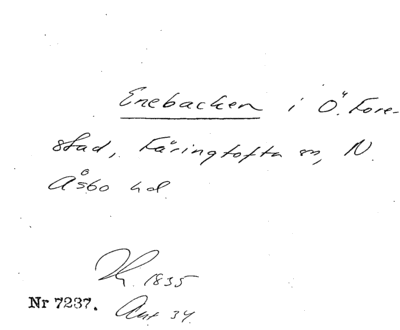 Enebacken i Ö. Fore-
stad, Färingtofta sn, N.
Åsbo hd.
1835
Nr 7237. Ant 34.